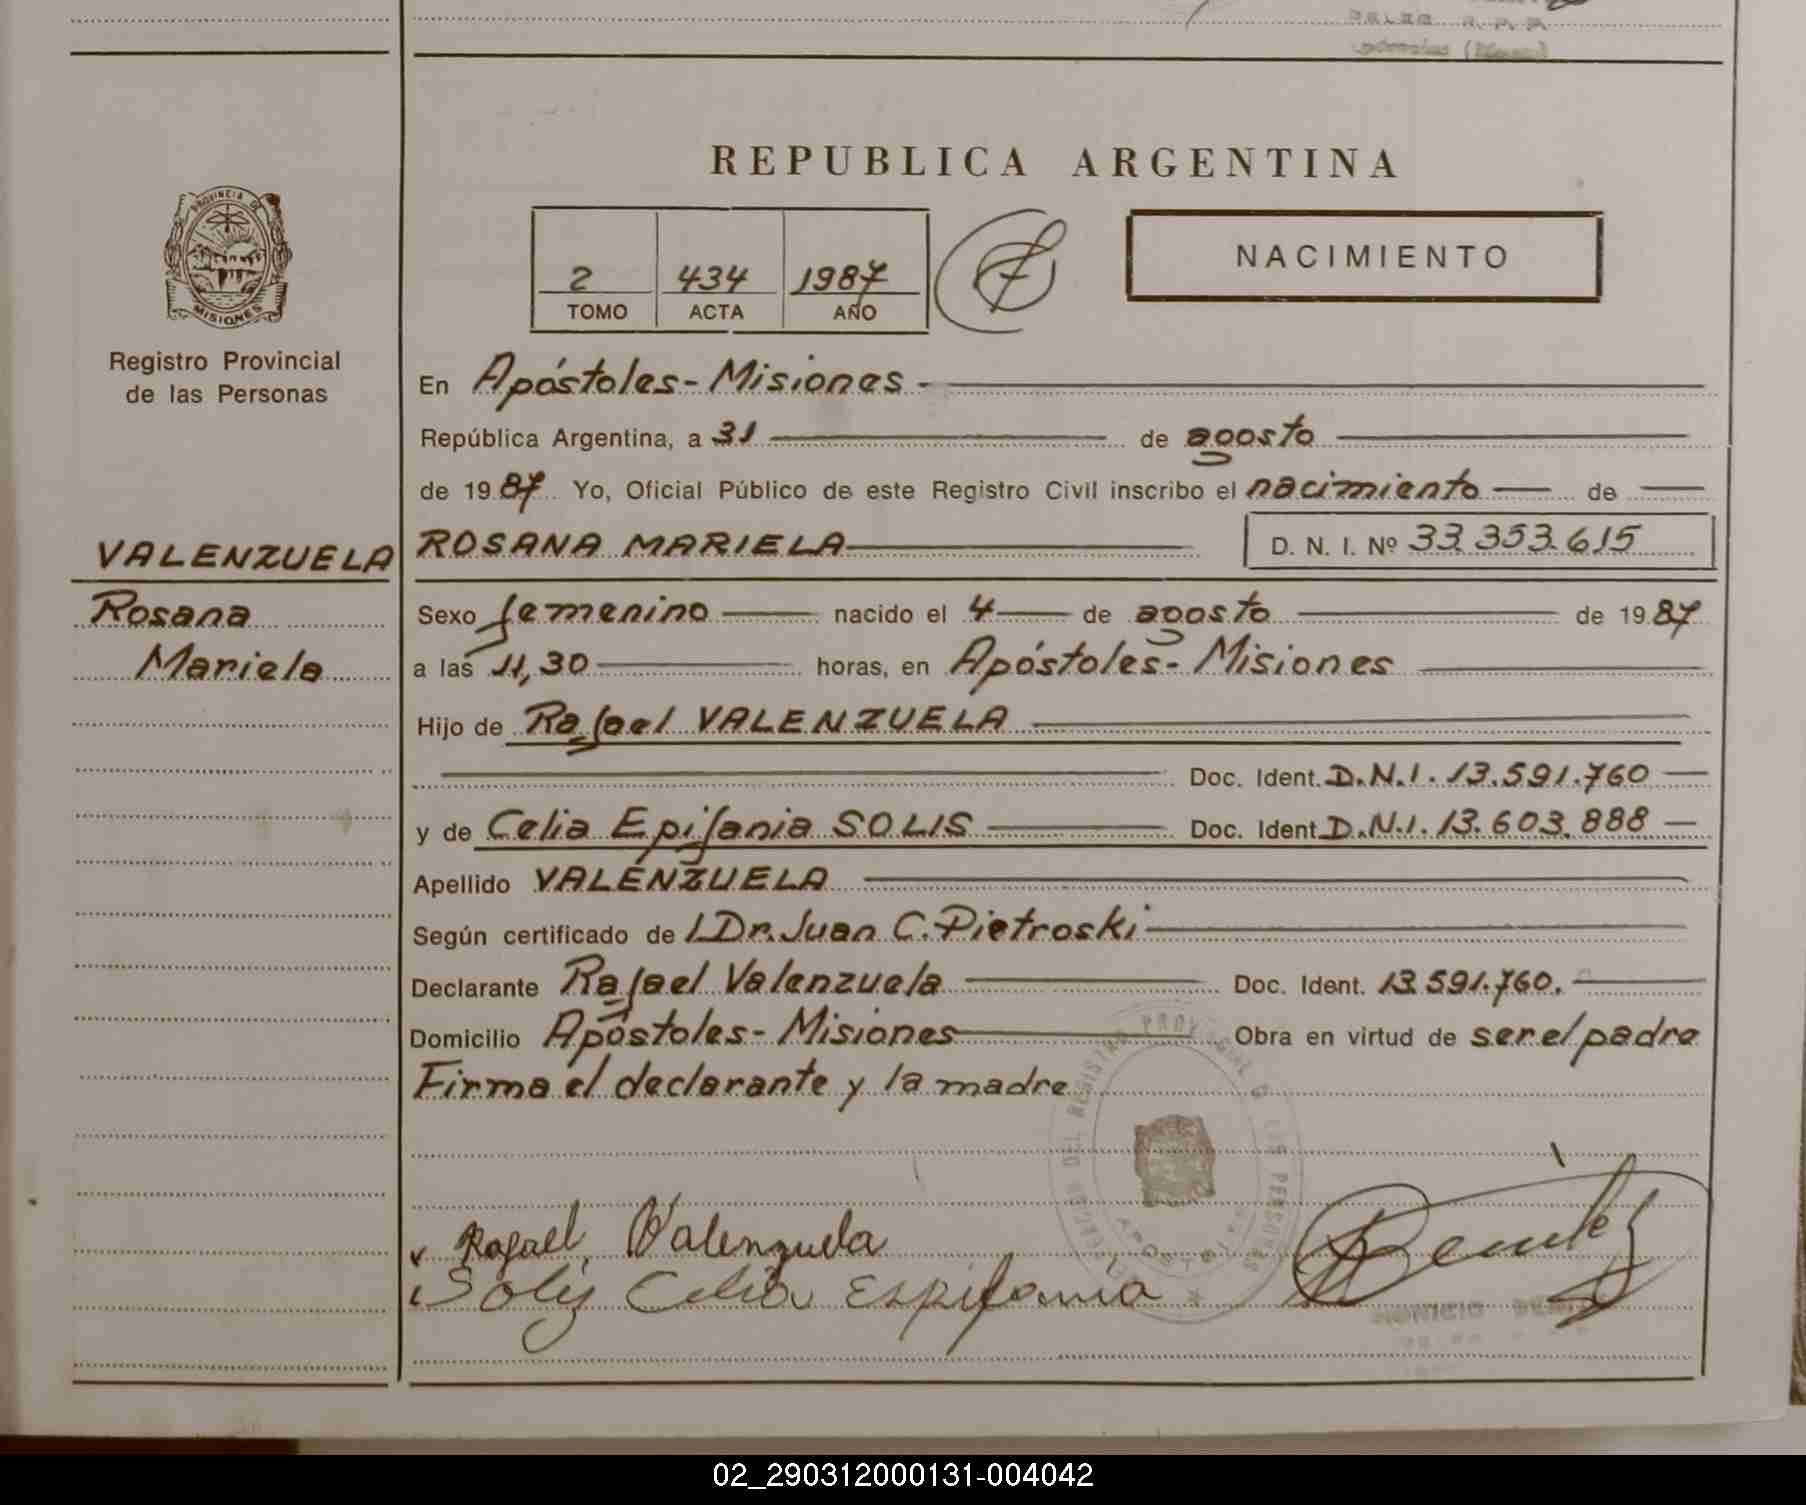 REPUBLICA ARGENTINA
PROVINCIA DE
MISIONES
Registro Provincial
de las Personas
2 434 1987
TOMO ACTA AÑO
NACIMIENTO
En Apóstoles - Misiones -
República Argentina, a 31 de agosto
de 1987 Yo, Oficial Público de este Registro Civil inscribo el nacimiento de
VALENZUELA
Rosana
Mariela
ROSANA MARIELA D. N. I. Nº 33.353.615
Sexo femenino nacido el 4 de agosto de 1987
a las 11,30 horas, en Apóstoles - Misiones
Hijo de Rafael VALENZUELA
Doc. Ident. D.N.I. 13.591.760
y de Celia Epifania SOLIS Doc. Ident. D.N.I. 13.603.888
Apellido VALENZUELA
Según certificado de l Dr. Juan C. Pietroski
Declarante Rafael Valenzuela Doc. Ident. 13.591.760.
Domicilio Apóstoles - Misiones Obra en virtud de ser el padre
Firma el declarante y la madre
Rafael Valenzuela
Solis Celia Espifania
02_290312000131-004042